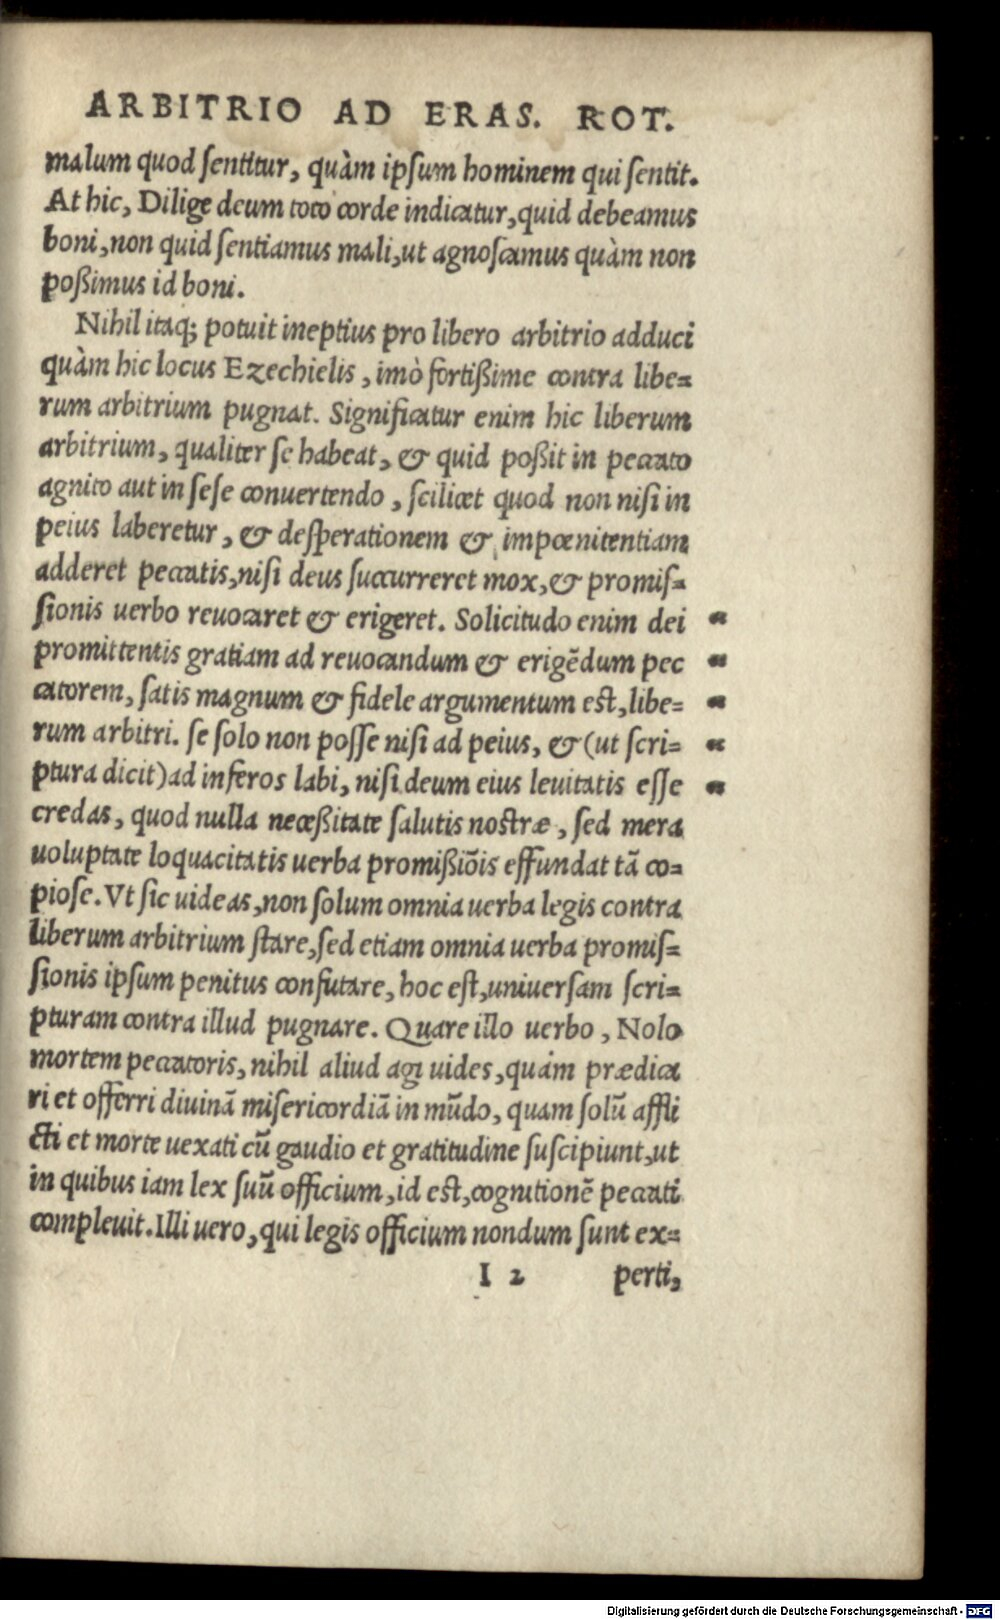 ARBITRIO AD ERAS. ROT.
malum quod ſentitur, quàm ipſum hominem qui ſentit.
At hic, Dilige deum toto corde indicatur, quid debeamus
boni, non quid ſentiamus mali, ut agnoſcamus quàm non
poßimus id boni.
Nihil itaq; potuit ineptius pro libero arbitrio adduci
quàm hic locus Ezechielis, imò fortißime contra libe=
rum arbitrium pugnat. Significatur enim hic liberum
arbitrium, qualiter ſe habeat, & quid poßit in peccato
agnito aut in ſeſe conuertendo, ſcilicet quod non niſi in
peius laberetur, & deſperationem & impœnitentiam
adderet peccatis, niſi deus ſuccurreret mox, & promiſ=
ſionis uerbo reuocaret & erigeret. Solicitudo enim dei "
promittentis gratiam ad reuocandum & erigēdum pec "
catorem, ſatis magnum & fidele argumentum eſt, libe= "
rum arbitri. ſe ſolo non poſſe niſi ad peius, & (ut ſcri= "
ptura dicit) ad inferos labi, niſi deum eius leuitatis eſſe "
credas, quod nulla neceßitate ſalutis noſtræ, ſed mera
uoluptate loquacitatis uerba promißiōis effundat tā co=
pioſe. Vt ſic uideas, non ſolum omnia uerba legis contra
liberum arbitrium ſtare, ſed etiam omnia uerba promiſ=
ſionis ipſum penitus confutare, hoc eſt, uniuerſam ſcri=
pturam contra illud pugnare. Quare illo uerbo, Nolo
mortem peccatoris, nihil aliud agi uides, quàm prædica
ri et offerri diuinā miſericordiā in mūdo, quam ſolū affli
cti et morte uexati cū gaudio et gratitudine ſuſcipiunt, ut
in quibus iam lex ſuū officium, id eſt, cognitionē peccati
compleuit. Illi uero, qui legis officium nondum ſunt ex=
I 2 perti,
Digitalisierung gefördert durch die Deutsche Forschungsgemeinschaft - DFG